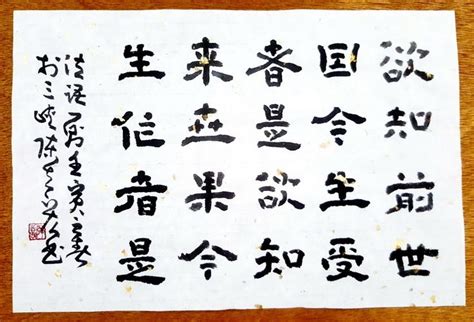 欲知前世
因今生受
者是欲知
来世果今
生作者是
法语一则壬寅之春
於三峡陈书